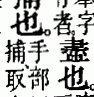 字
者
盡也。
也。
手部
捕取